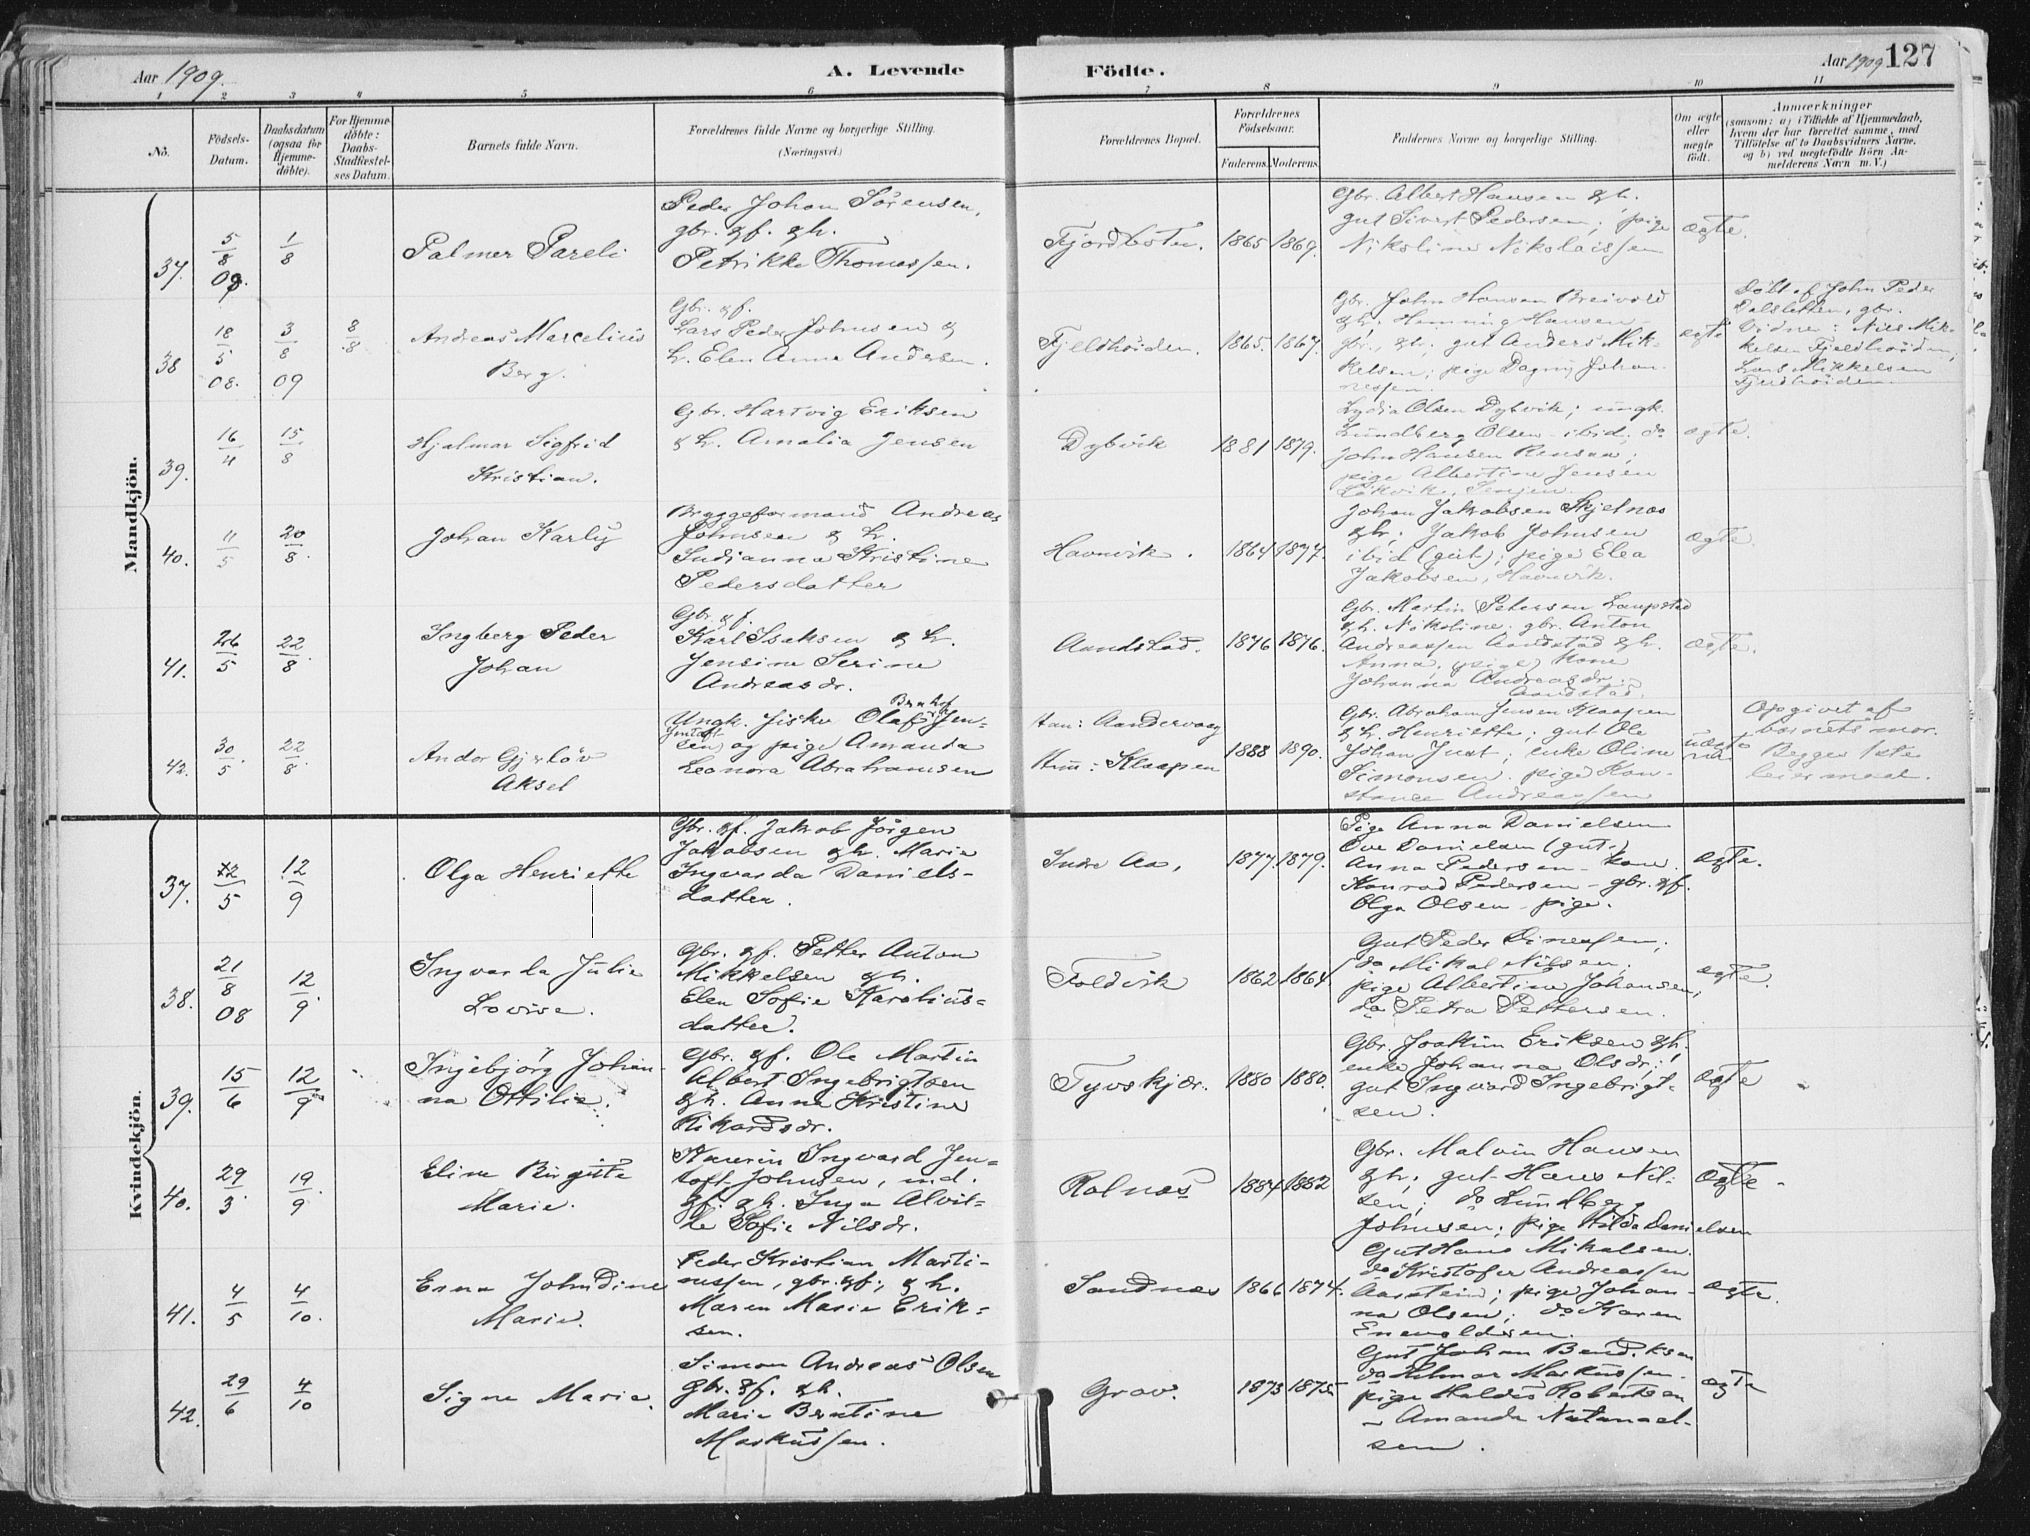 Aar 1909.
A. Levende Födte.
Aar 1909 127
1 2 3 4 5 6 7 8 9 10 11
No.
Födsels-Datum.
Daabsdatum (ogsaa for Hjemmedöbte).
For Hjemmedöbte: Daabs-Stadfæstelses Datum.
Barnets fulde Navn.
Forældrenes fulde Navne og borgerlige Stilling.
(Næringsvei.)
Forældrenes Bopæl.
Forældrenes Födselsaar.
Faderens. Moderens.
Faddernes Navne og borgerlige Stilling.
Om ægte eller uægte födt.
Anmærkninger
(saasom: a) i Tilfælde af Hjemmedaab,
hvem der har forrettet samme, med
Tilföielse af to Daabsvidners Navne,
og b) ved uægtefödte Börn An-
melderens Navn m. V.)
Mandkjön.
37. 5/8 09. 1/8
Palmer Pareli
Peder Johan Sörensen,
gbr. &f. &h.
Petrikke Thomassen.
Fjordbotn. 1865 1869.
Gbr. Albert Hansen &h.
gut Sivert Pedersen; pige
Nikoline Nikolaissen
ægte.
38 18/5 08. 3/8 09 8/8
Andreas Marcelius
Berg.
Gbr. &f.
Lars Peder Johnsen &
h. Elen Anna Andersen.
Fjeldhöiden. 1865. 1867.
Gbr. John Hansen Breivold
&h; Henning Hansen -
gbr., &h; gut Anders Mik-
kelsen; pige Dagny Johan-
nessen.
ægte
Döbt af John Peder
Dalsletten, gbr.
Vidner: Nils Mik-
kelsen Fjeldhöiden,
Lars Mikkelsen
Fjeldhöiden.
39. 16/4 15/8
Hjalmar Sigfrid
Kristian.
Gbr. Hartvig Eriksen
& h. Amalia Jensen
Dybvik 1881 1879.
Lydia Olsen Dybvik; ungk.
Lundberg Olsen ibid; do
John Hansen Rensaa;
pige Albertine Jensen
Senjen.
ægte.
40. 11/5 20/8
Johan Karly
Bryggeformand Andreas
Johnsen & h.
Indianna Kristine
Pedersdatter
Havnvik. 1864 1877.
Johan Jakobsen Skjelnes
&h; Jakob Johnsen
ibid (gut); pige Elea
Jakobsen, Havnvik.
ægte.
41. 26/5 22/8
Ingberg Peder
Johan
Gbr. &f.
Karl Isaksen & h.
Jensine Serine
Andreasdr.
Aandstad. 1876 1876.
Gbr. Martin Petersen Laupstad
&h. Nikoline. gbr. Anton
Andreassen Aandstad &h.
Anna, (pige) Kone
Johanna Andreasdr.
Aandstad.
ægte.
42. 30/5 22/8
Andor Gjerlöv
Aksel
Ungk. fisker Olaf Jen-
sen og pige Amanda
Leonora Abrahamsen
han: Aandervaag
Hun: Klaapen
1888 1890.
Gbr. Abraham Jensen Klaapen
& h. Henriette; gut Ole
Johan Just; enke Oline
Simonsen. pige Kon-
stance Andreassen
Opgivet af
barnets mor.
Begges 1ste
leiermaal.
Kvindekjön.
37. 22/5 12/9
Olga Henriette
Gbr. &f. Jakob Jörgen
Jakobsen &h. Marie
Ingvarda Daniels-
datter.
Indre Aa, 1877. 1879.
Pige Anna Danielsen
Ove Danielsen (gut.)
Anna Pedersen - kone
Konrad Pedersen - gbr. &f.
Olga Olsen - pige.
ægte.
38. 21/8 08 12/9
Ingvarda Julie
Lovise.
Gbr. &f. Petter Anton
Mikkelsen &h.
Elen Sofie Karolius-
datter.
Foldvik 1862 1864
Gut Peder Dinessen;
do Mikal Nilsen;
pige Albertine Johansen,
do Petra Pettersen.
ægte.
39. 15/6 12/9
Ingebjörg Johan-
na Ottilie.
Gbr. &f. Ole Martin
Albert Ingebrigtsen
&h. Anna Kristine
Rikardsdr.
Tyvskjær. 1880 1880.
Gbr. Joakim Eriksen &h.
enke Johanna Olsdr;
gut Ingvard Ingebrigt-
sen.
ægte
40. 29/3 19/9
Eline Birgitte
Marie.
Kaurin Ingvard Jen-
toft Johnsen, ind.
&f. &h. Inga Alvil-
de Sofie Nilsdr.
Rolnes 1884 1882
Gbr. Malvin Hansen
&h; gut Hans Nil-
sen; do Lundberg
Johnsen; pige Hilda Danielsen
ægte.
41. 4/5 4/10.
Erna Johndine
Marie.
Peder Kristian Marti-
nussen, gbr. &f; & h.
Maren Marie Erik-
sen.
Sandnes 1866 1874.
Gut Hans Mikalsen.
do Kristofer Andreassen
Aarstein; pige Johan-
na Olsen; do Karen
Enevoldsen.
ægte.
42. 29/6 4/10
Signe Marie.
Simon Andreas Olsen
Gbr. &f. &h.
Marie Berntine
Markussen.
Grov. 1873 1875
Gut Johan Bendiksen
do Hilmar Markussen.
pige Haldis Robertsen
- Amanda Natanael-
sen.
ægte